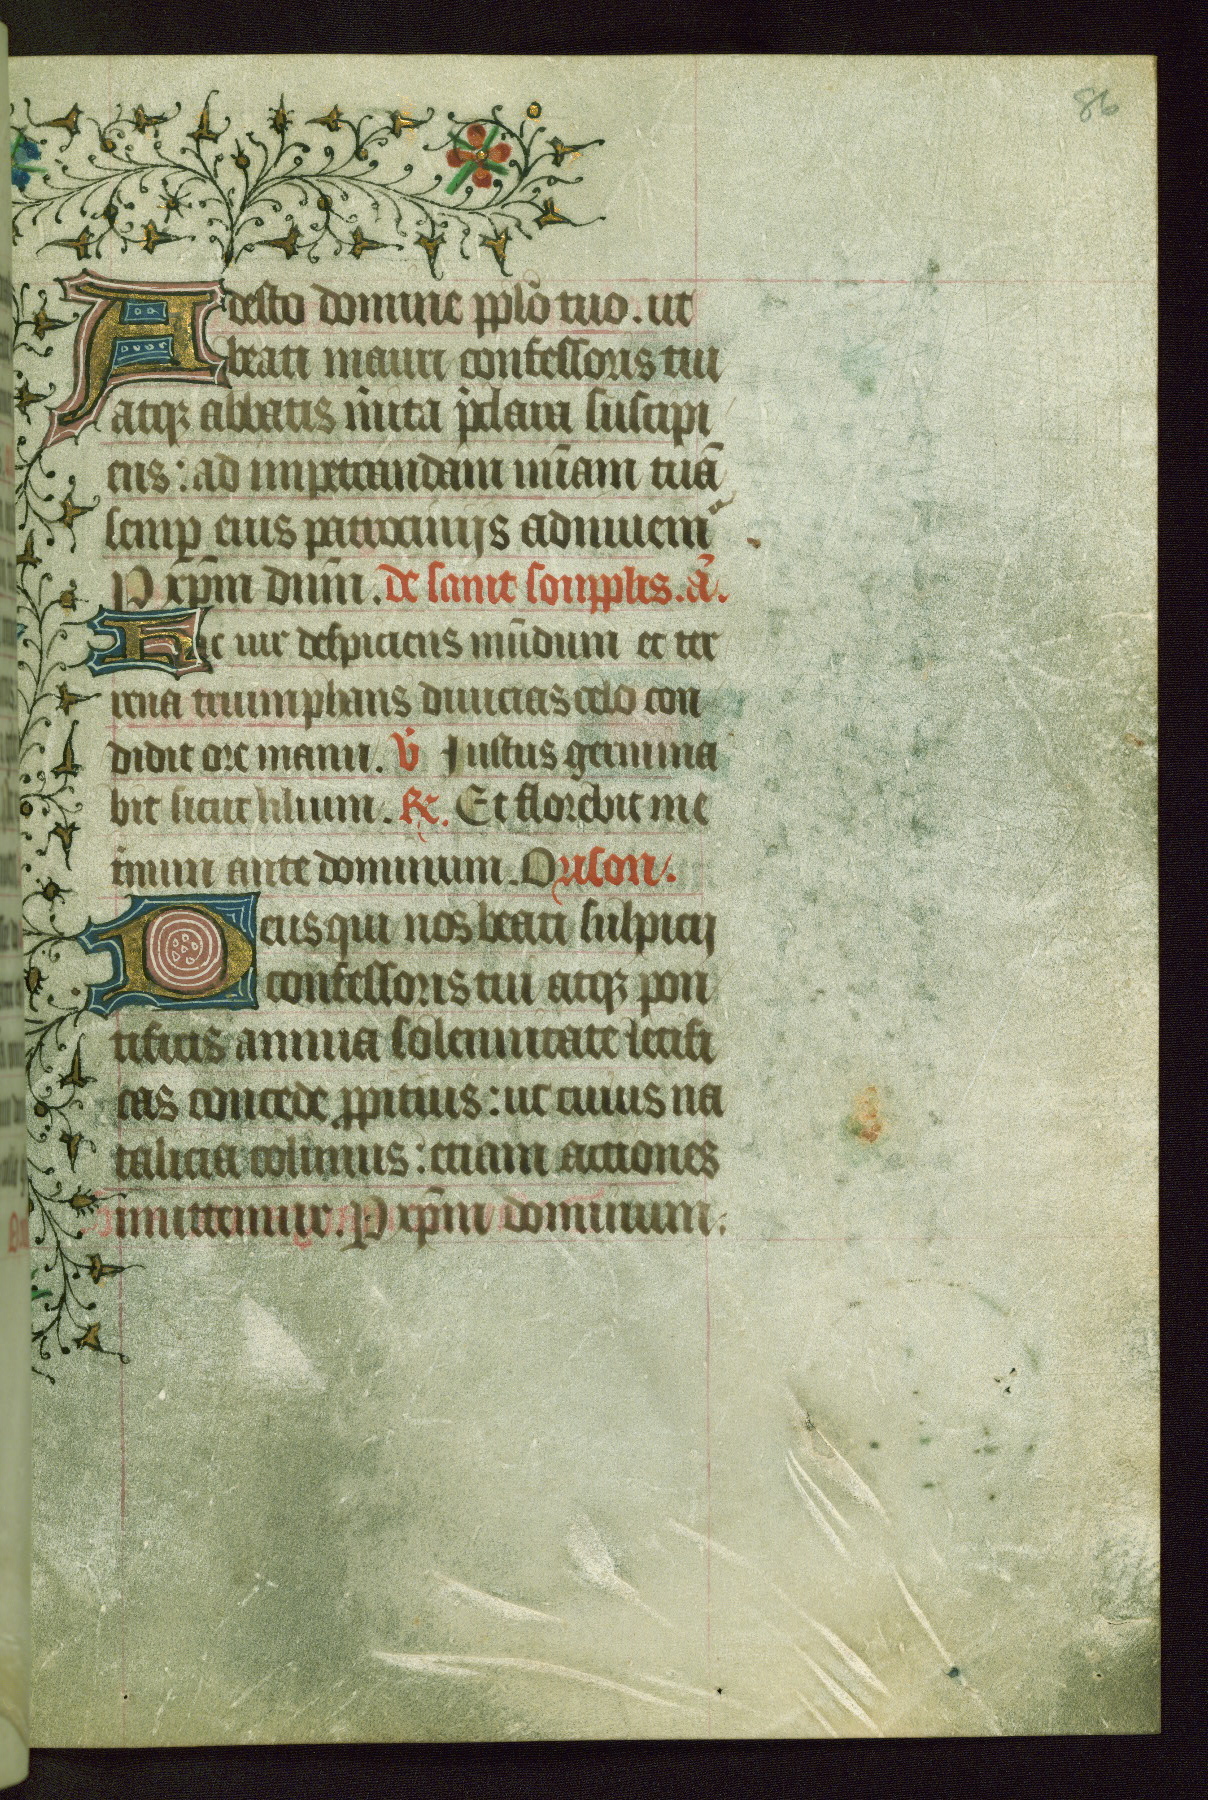 86
Adesto domine pplo tuo. ut
beati mauri confessoris tui
atqꝫ abbatis m̄ita p̄clara suscipi
ens: ad impetrandam mīam tuā
semꝑ eius patrocinijs adiuuem᷒
P xp̄m dnm̄. De saint soupplis. ā.
Hic uir despiciens mūdum et ter
rena triumphans diuicias celo con
didit ore manu. v̄ Justus germina
bit sicut lilium. R̄. Et florebit in e
t̄num ante dominum. Orison.
Deus qui nos beati sulpicij
confessoris tui atqꝫ pon
tificis annua solennitate letifi
cas concede ꝓpitius: ut cuius na
talicia colimus: etiam actiones
imittemur. P xp̄m dominum.